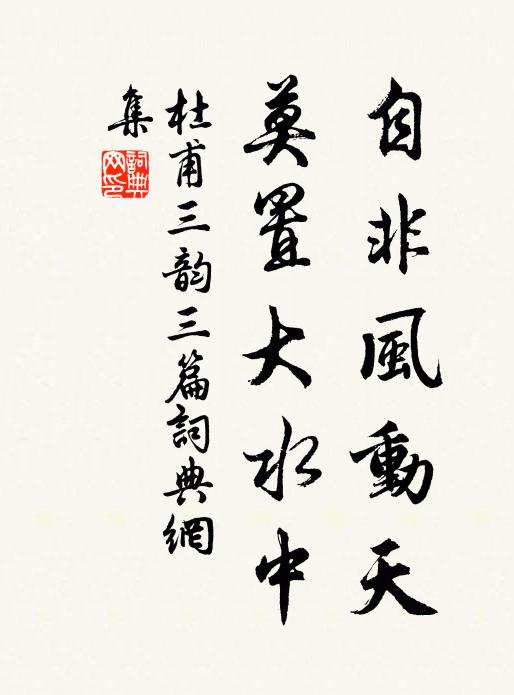 自非風動天
莫置大水中
杜甫三韵三篇詞典網
集
詞典网印